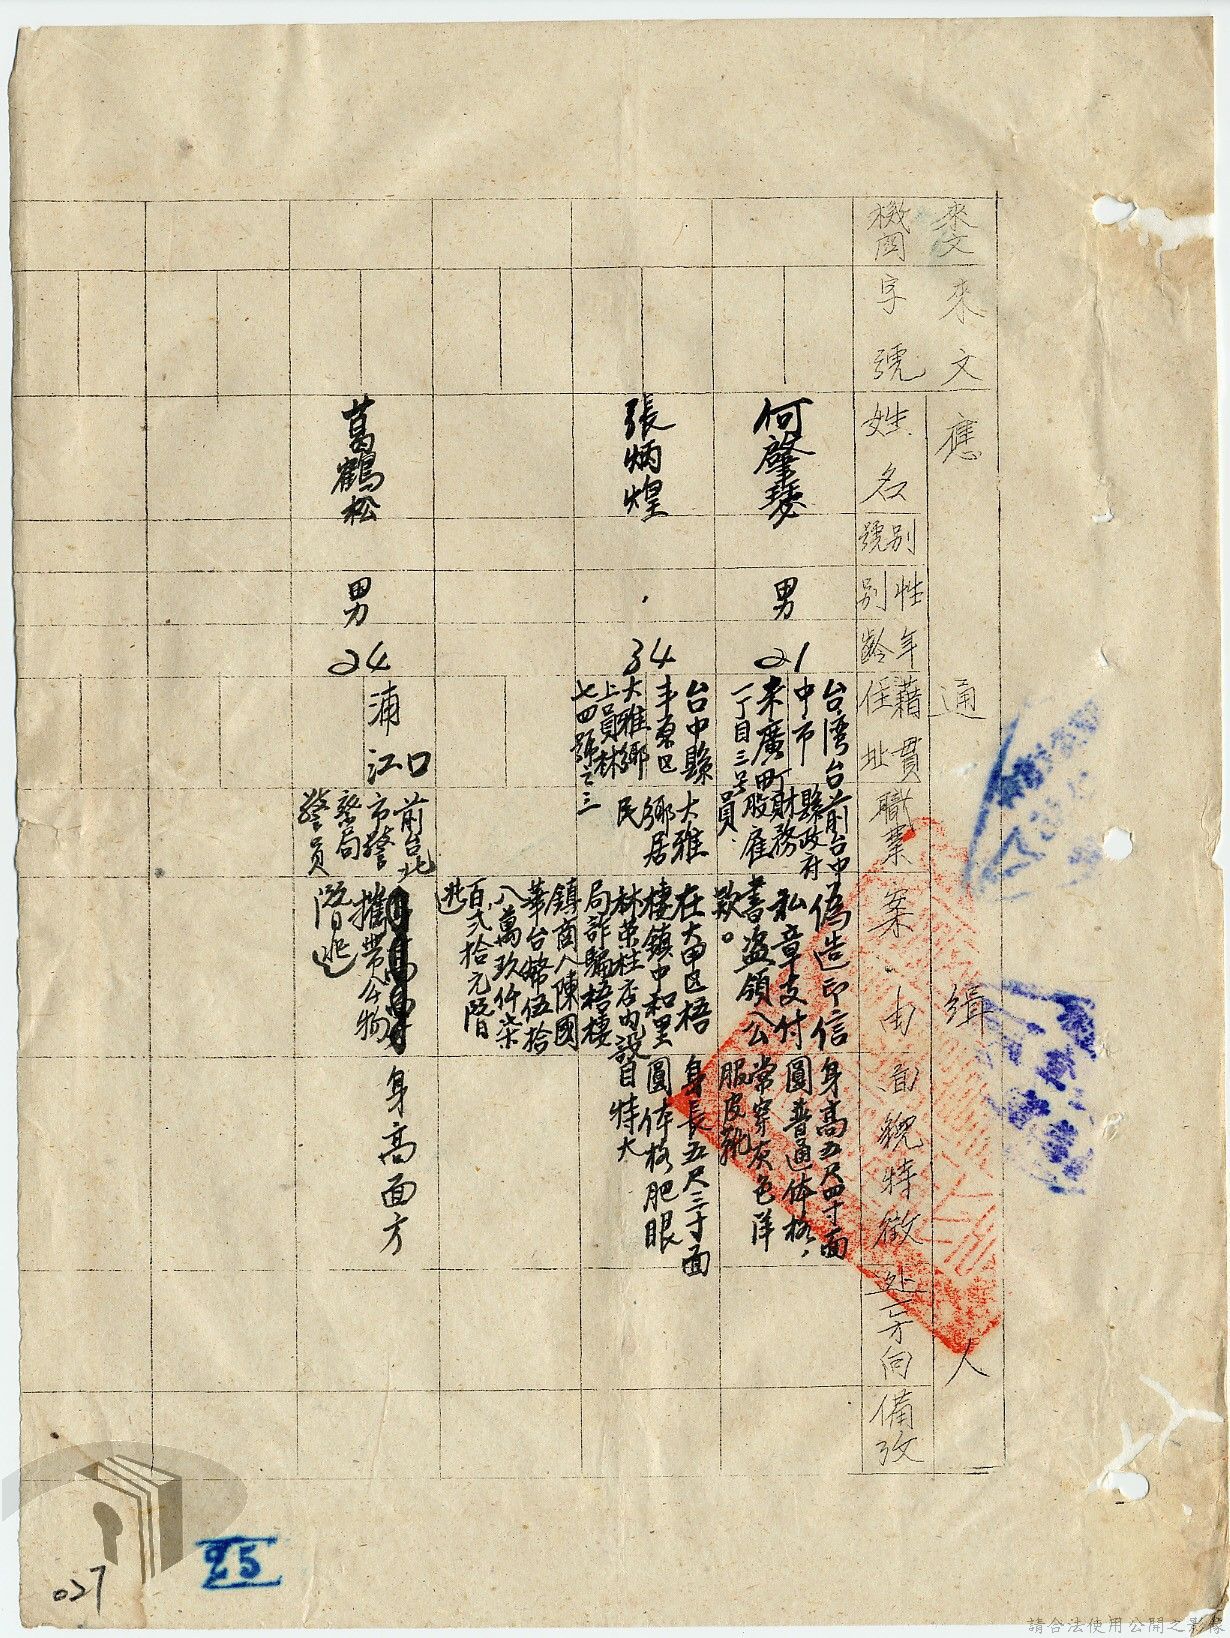 來文
機關
來文
字號
應通緝人
姓名
別號
性別
年齡
藉貫
住址
職業
案由
面貌特徵
处方向
備攷
何肇瑟
男
21
台湾台
中市
末廣町
一丁目三号
前台中
縣政府
財務
股雇
員
偽造印信
私章支付
書盗領公
欵。
身高五尺四寸面
圓普通体格，
常穿灰色洋
服皮靴
張炳煌
〃
34
台中縣
丰原区
大雅鄉
上員林
七四號之三
大雅
鄉居
民
在大甲区梧
棲鎮中和里
林荣桂店内設
局詐騙梧棲
鎮商人陳國
華台幣伍拾
八萬玖仟柒
百弍拾元潛
逃
身長五尺三寸面
圓体格肥眼
目特大
葛鶴松
男
24
浦江口
前台北
市警
察局
警員
攜帶公物
潛逃
身高面方
25
027
請合法使用公開之影像